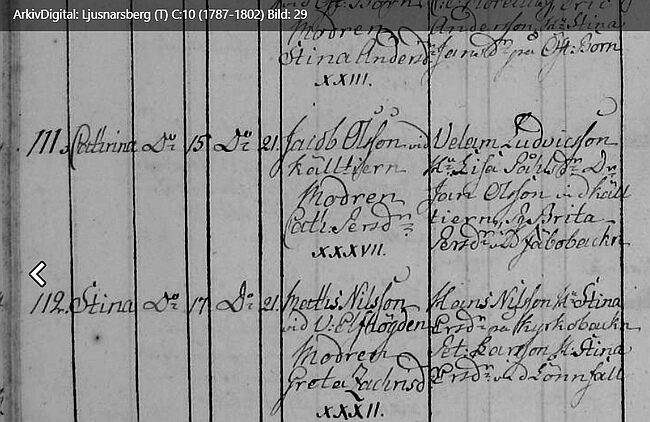 ArkivDigital: Ljusnarsberg (T) C:10 (1787-1802) Bild: 29
Modren
Stina Andersdr
XXIII.
Anderson Hu Stina
Jansdr på Öf: Born
111. Cathrina Do 15 Do 21. Jacob Olsson vid
Källtiern
Modren
Cath. Persdr
XXXVII.
Velam Ludvicsson
Hu Lisa
Jan Olsson vid Käll
tiern, Brita
Persdr vid Jäbobackn
112. Stina Do 17 Do 21. Matts Nilsson
vid U: Elfhögden
Modren
Greta Zachrisdr
XXXII.
Hans Nilsson Hu Stina
Ersdr på Kyrkobackn
Pet: Larsson H: Stina
Ersdr vid Lönnfall